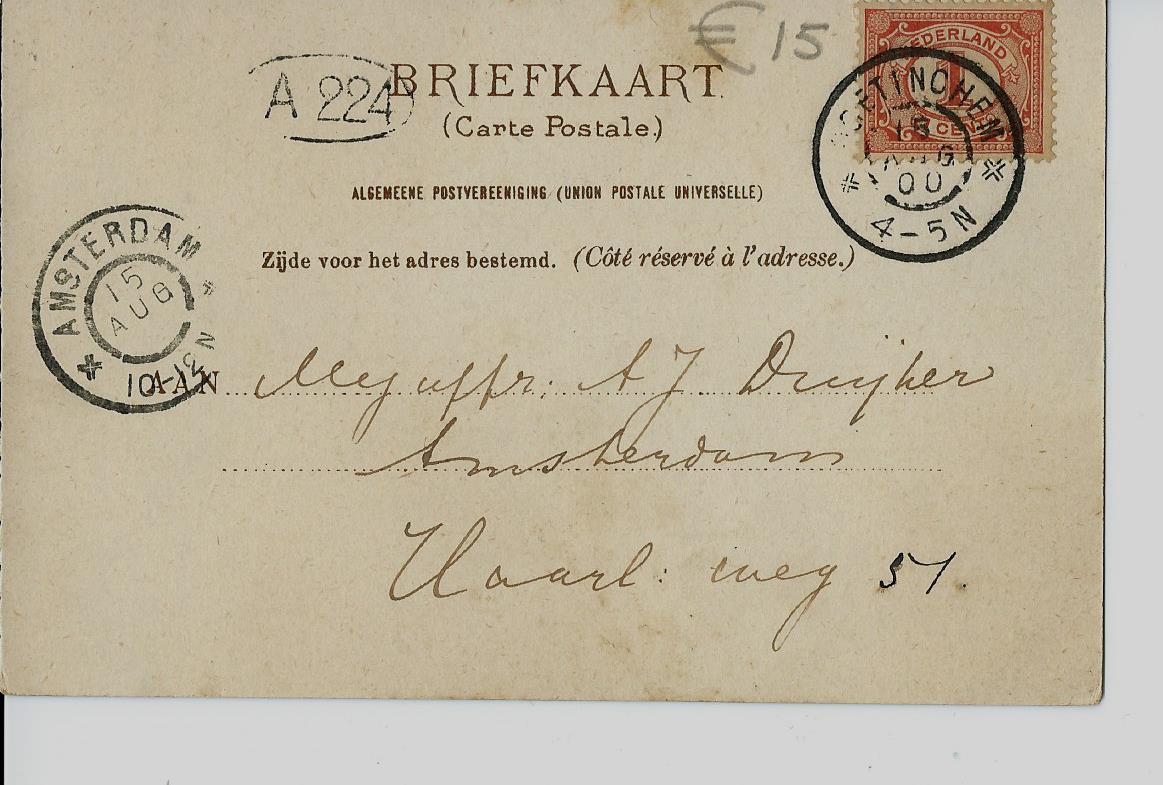 € 15
NEDERLAND
1
CENT
A 224
BRIEFKAART
(Carte Postale.)
DOETINCHEM
15
AUG
00
4-5N
ALGEMEENE POSTVEREENIGING (UNION POSTALE UNIVERSELLE)
AMSTERDAM
15
AUG
10-
N
Zijde voor het adres bestemd. (Côté réservé à l'adresse.)
AAN Mejuffr: A J. Druijker
Amsterdam
Haarl: weg 51.